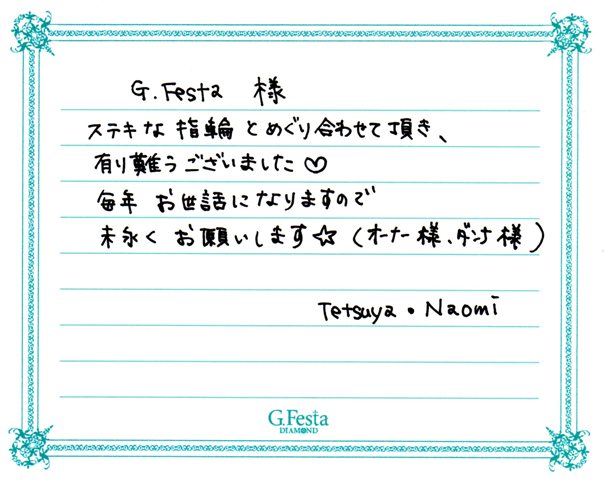 G.Festa 様
ステキな 指輪 とめぐり合わせて頂き、
有り難うございました♡
毎年 お世話になりますので
末永く お願いします☆ (オーナー様、ダンナ様)
Tetsuya・Naomi
G.Festa
DIAMOND